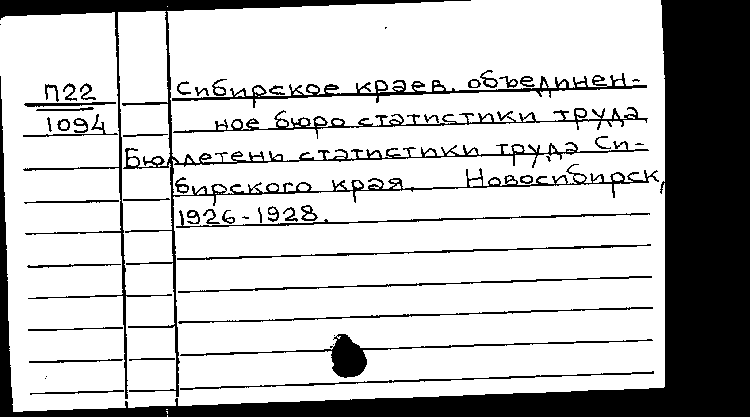 П22 Сибирское краев. объединен-
1094 ное бюро статистики труда
Бюллетень статистики труда Си-
бирского края. Новосибирск,
1926-1928.